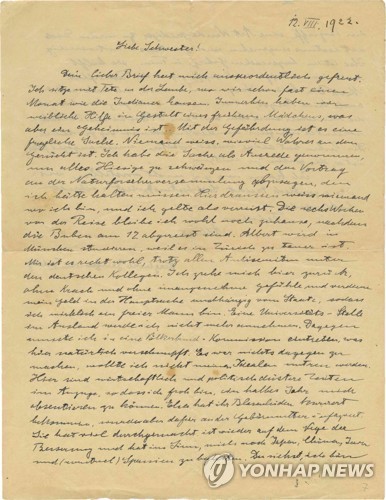 12. VIII. 1922.
Liebe Schwester!
Dein lieber Brief hat mich ausserordentlich gefreut.
Ich sitze mit Tete in der Laube, wo wir schon fast einen
Monat wie die Indianer hausen. Immerhin haben wir
weibliche Hilfe in Gestalt eines früheren Mädchens, was
aber ein Geheimnis ist. Mit der Gefährdung ist es eine
fragliche Sache. Niemand weiss, wieviel Wahres an dem
Gerücht ist. Ich habe die Sache als
um alles und den Vortrag
an der Naturforscherversammlung abzusagen, den
ich hätte halten müssen. Hier draussen weiss niemand
wo ich bin, und ich gelte als verreist. Die sechs Wochen
vor der Reise bleibe ich wohl noch zuhause, nachdem
die Buben am 17. abgereist sind. Albert wird in
München studieren, weil es in Zürich zu teuer ist.
Mir ist es recht wohl, trotz aller Antisemiten unter
den deutschen Kollegen. Ich halte mich hier zurück,
ohne Krach und ohne unangenehme Gefühle und verdiene
mein Geld in der Hauptsache unabhängig vom Staate, sodass
ich wirklich ein freier Mann bin. Eine Universitäts-Stelle
im Ausland werde ich nicht mehr annehmen. Dagegen
musste ich in eine Völkerbund-Kommission eintreten, was
hier natürlich verschnupft. Es war nichts dagegen zu
machen, wollte ich nicht meinen Idealen untreu werden.
Hier sind wirtschaftlich und politisch düstere Zeiten
im Anzuge, sodass ich froh bin, ein halbes Jahr mich
absentieren zu können. Elsa hat
bekommen, und war
Sie hat viel durchgemacht, ist wieder auf dem Wege der
Besserung und hat im Sinn, mich nach Japan, China, Java
und (eventuel) Spanien zu begleiten. Du siehst, ich bin
YONHAP NEWS